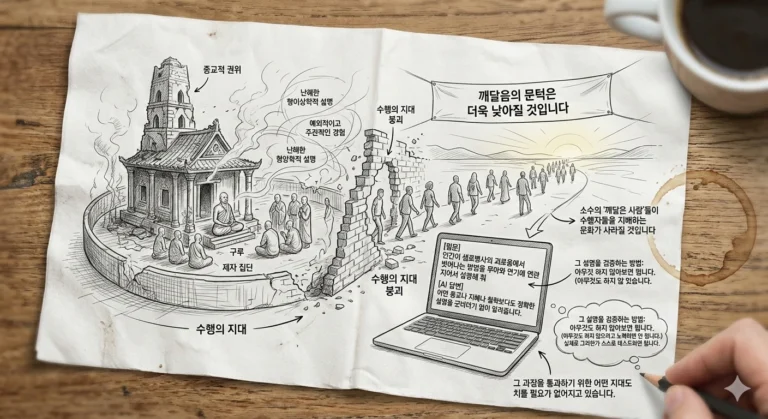 종교적 권위
난해한
형이상학적 설명
예외적이고
주관적인 경험
난해한
형앙학적 설명
구루
제자 집단
수행의 지대
수행의 지대
붕괴
수행의 지대
붕괴
깨달음의 문턱은
더욱 낮아질 것입니다
소수의 '깨달은 사람'들이
수행자들을 지배하는
문화가 사라질 것입니다
[질문]
인간이 생로병사의 괴로움에서
벗어나는 방법을 무아와 연기에 연관
지어서 설명해 줘
[AI 답변]
어떤 종교나 지혜나 철학보다도 정확한
설명을 군더더기 없이 알려줍니다.
그 설명을 검증하는 방법:
아무것도 하지 않아보면 됩니다.
(아무것도 하지 않 있습니다.
그 설명을 검증하는 방법:
아무것도 하지 않아보면 됩니다.
(아무것도 하지 않으려고 노력하면 안 됩니다.)
실제로 그러한가 스스로 테스트하면 됩니다.
그 과정을 통과하기 위한 어떤 지대도
치를 필요가 없어지고 있습니다.